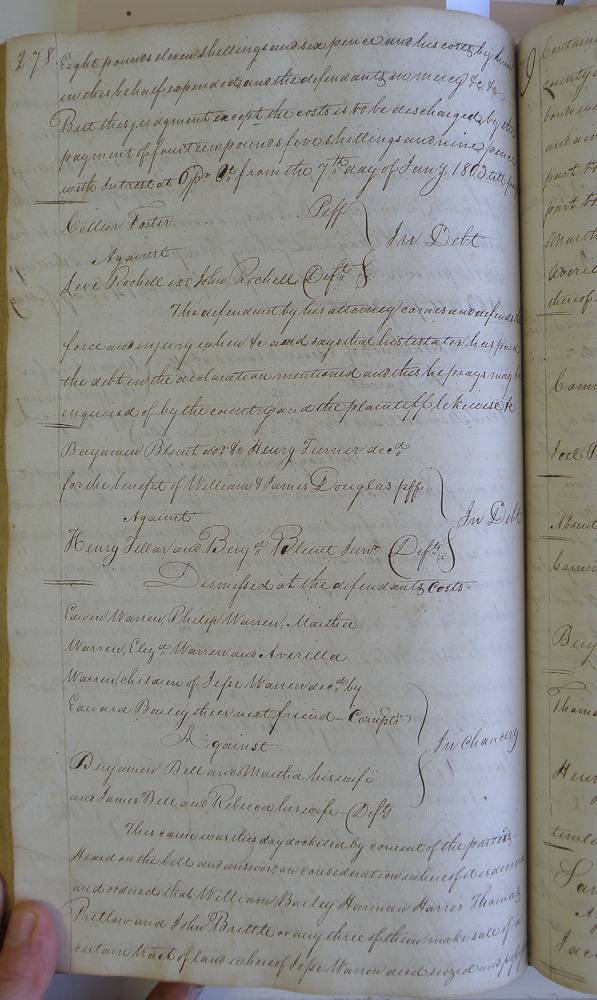 278
Eight pounds eleven shillings and six pence and his costs by him
in this behalf expended, and the defendants in mercy &c. &c
But this judgment except the costs is to be discharged by the
payment of fourteen pounds five shillings and nine pence
with Interest at 6 pr Ct. from the 7th day of Jany 1803 till
Collier Foster. Plff
Against
Levi Rochell exr John Rochell Defts
In Debt
The defendant by his attorney comes and defends
force and injury when &c and says that his testator has paid
the debt in the declaration mentioned and this he prays may
inquired of by the country and the plaintiff likewise &
Benjamin Blunt &c Henry Turner decd
for the benefit of William & James Douglas plff
Against
Henry and Benj Blunt Junr Defts
In Debt
Dismissed at the defendants costs
Warren, Philip Warren, Martha
Warren, Eliza Warren and Averilla
Warren, children of Jesse Warren decd by
Edward Bailey their next friend - Complts
Against
Benjamin Bell and Martha his wife
and James Bell and Rebecca his wife Defts
In Chancery
This cause was this day docketed by consent of the parties
Heard on the bill and answer, on consideration whereof it is
and ordered that William Bailey Harman Harris Thomas
Pretlow and John Brittle or any three of them make sale of a
certain tract of land whereof Jesse Warren died seized and